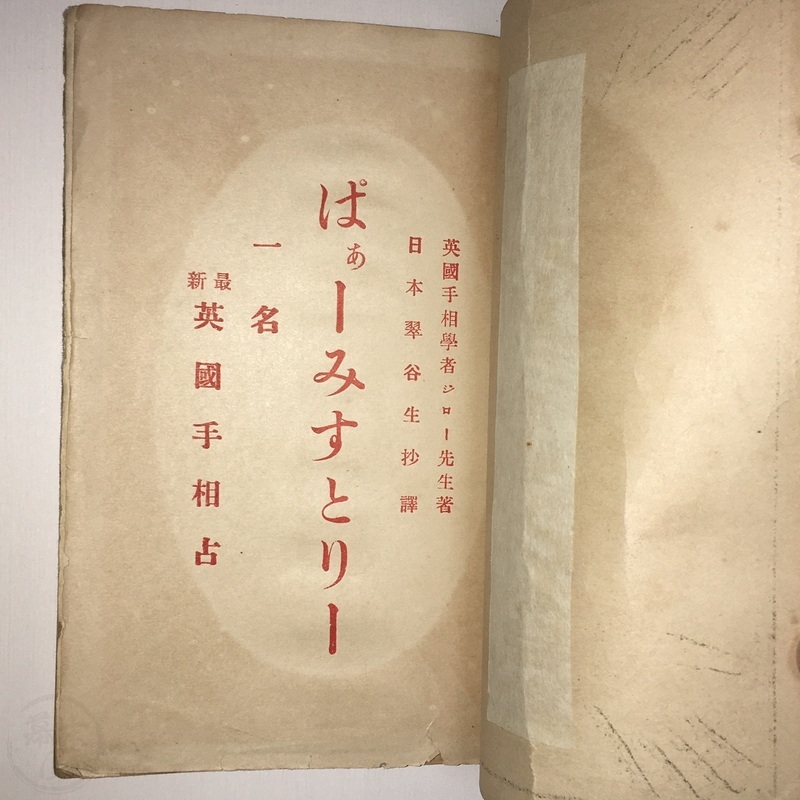 英國手相學者ジロー先生著
日本翠谷生抄譯
ぱぁーみすとりー
一名
最新
英國手相占